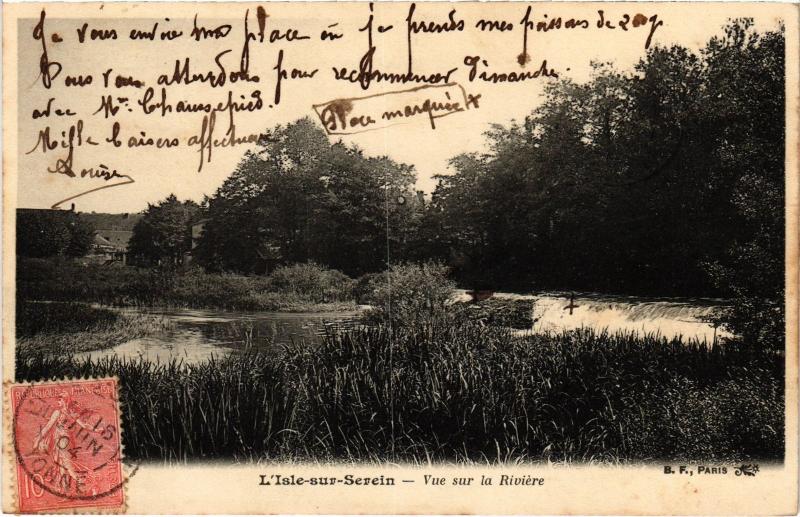 Je vous envoie ma place où je prends mes poissons de 200g.
Nous vous attendons pour recommencer Dimanche.
avec Mr. Chaussepied.
Place marquée +
Mille baisers affectueux
Louise
REPUBLIQUE FRANÇAISE
10
JUIN
04
YONNE
L'Isle-sur-Serein — Vue sur la Rivière
B. F., PARIS